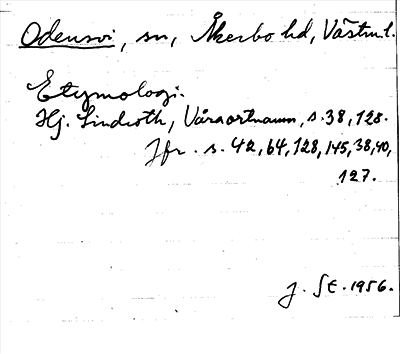 Odensvi, sn, Åkerbo hd, Västml.
Etymologi.
Hj. Lindroth, Våra ortnamn, s. 38, 128.
Jfr. s. 42, 64, 128, 145, 38, 40,
127.
J. SE. 1956.